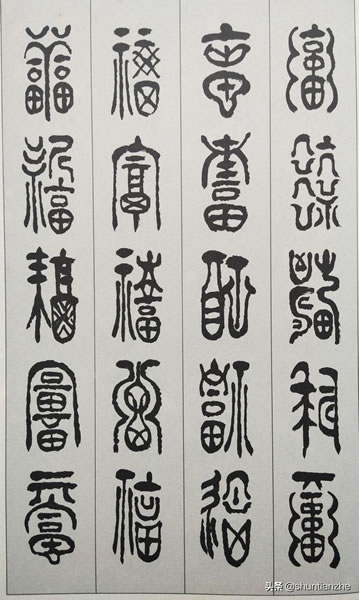 福福福福福
福福福福福
福福福福福
福福福福福
头条 @shuntianzhe